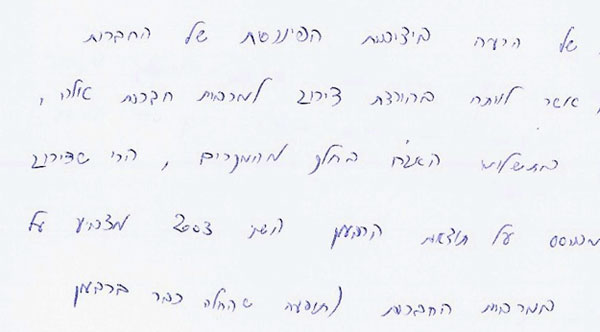 של הרעה ביציבות הפיננסית של החברות
אשר לוותה בהורדת דירוג למרבית חברות אלה,
בתשלום האג"ח בחלק מהמקרים, הרי שדירוג
מבוסס על תוצאות הרבעון השני 2003 מצביע על
ממרבית החברות (תופעה שהחלה כבר ברבעון